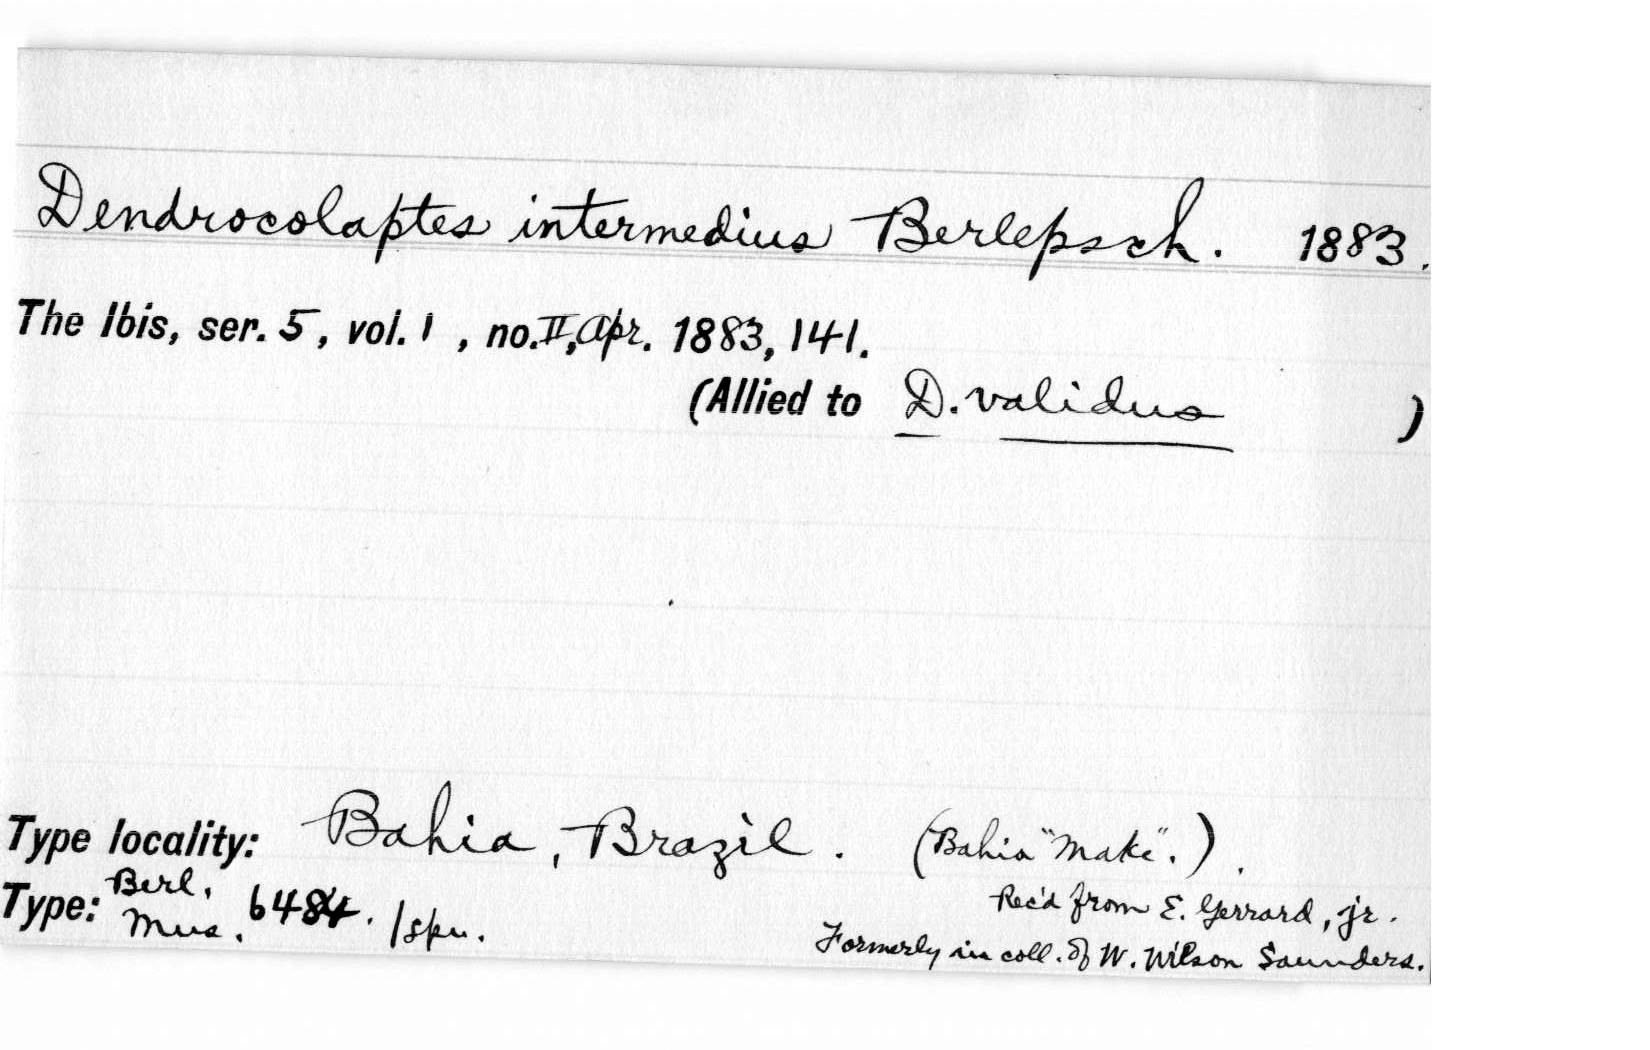 Dendrocolaptes intermedius Berlepsch. 1883.
The Ibis, ser. 5, vol. 1, no. II, Apr. 1883, 141.
(Allied to D. validus )
Type locality: Bahia, Brazil. (Bahia "make".).
Type: Berl. Mus. 6484. 1 spn.
Rec'd from E. Gerrard, jr.
Formerly in coll. of W. Wilson Saunders.